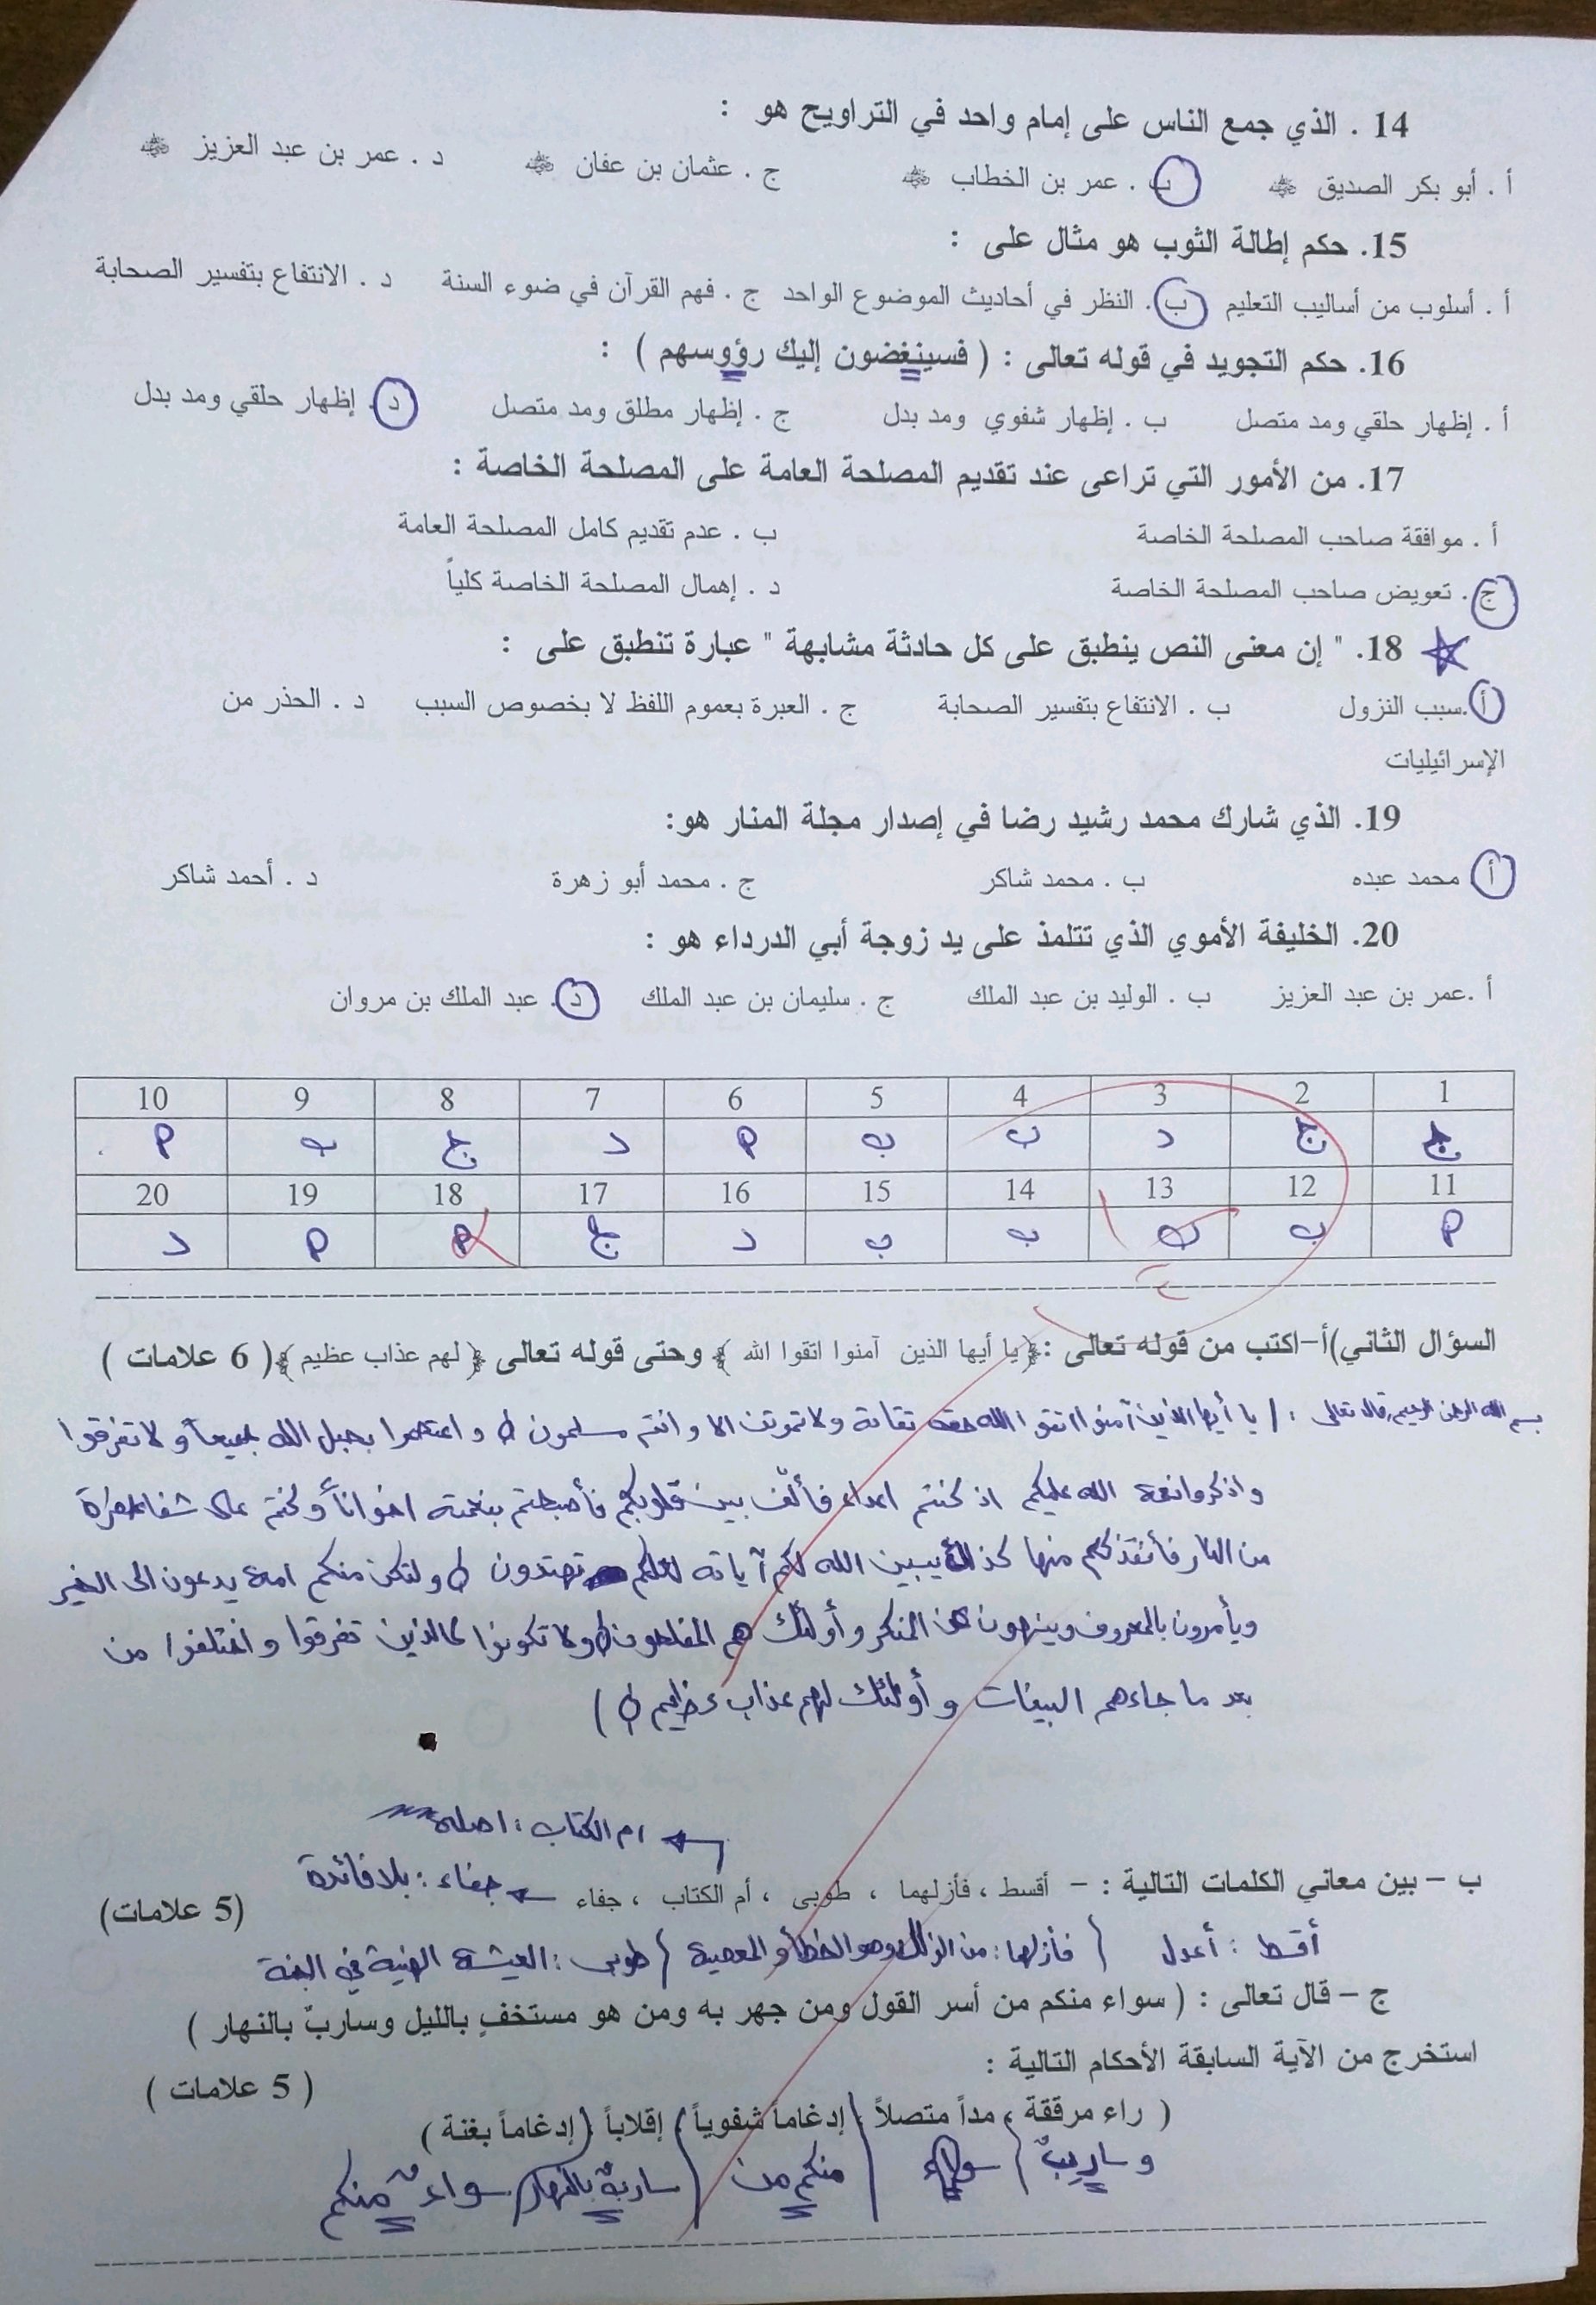 14 . الذي جمع الناس على إمام واحد في التراويح هو :
أ . أبو بكر الصديق ب . عمر بن الخطاب ج . عثمان بن عفان د . عمر بن عبد العزيز
15. حكم إطالة الثوب هو مثال على :
أ . أسلوب من أساليب التعليم ب . النظر في أحاديث الموضوع الواحد ج . فهم القرآن في ضوء السنة د . الانتفاع بتفسير الصحابة
16. حكم التجويد في قوله تعالى : ( فسينغضون إليك رؤوسهم ) :
أ . إظهار حلقي ومد متصل ب . إظهار شفوي ومد بدل ج . إظهار مطلق ومد متصل د . إظهار حلقي ومد بدل
17. من الأمور التي تراعى عند تقديم المصلحة العامة على المصلحة الخاصة :
أ . موافقة صاحب المصلحة الخاصة ب . عدم تقديم كامل المصلحة العامة
ج . تعويض صاحب المصلحة الخاصة د . إهمال المصلحة الخاصة كلياً
18. " إن معنى النص ينطبق على كل حادثة مشابهة " عبارة تنطبق على :
أ .سبب النزول ب . الانتفاع بتفسير الصحابة ج . العبرة بعموم اللفظ لا بخصوص السبب د . الحذر من
الإسرائيليات
19. الذي شارك محمد رشيد رضا في إصدار مجلة المنار هو:
أ محمد عبده ب . محمد شاكر ج . محمد أبو زهرة د . أحمد شاكر
20. الخليفة الأموي الذي تتلمذ على يد زوجة أبي الدرداء هو :
أ .عمر بن عبد العزيز ب . الوليد بن عبد الملك ج . سليمان بن عبد الملك د . عبد الملك بن مروان
1 2 3 4 5 6 7 8 9 10
ج ج د ب ب أ د ج ب أ
11 12 13 14 15 16 17 18 19 20
أ ب ب ب د ج أ أ د
السؤال الثاني)أ-اكتب من قوله تعالى :﴿يا أيها الذين آمنوا اتقوا الله ﴾ وحتى قوله تعالى ﴿ لهم عذاب عظيم ﴾( 6 علامات )
بسم الله الرحمن الرحيم قال تعالى : ( يا أيها الذين آمنوا اتقوا الله حق تقاته ولا تموتن الا وانتم مسلمون واعتصموا بحبل الله جميعاً ولا تفرقوا
واذكروا نعمة الله عليكم اذ كنتم اعداء فألّف بين قلوبكم فأصبحتم بنعمته اخواناً وكنتم على شفا حفرة
من النار فأنقذكم منها كذلك يبين الله لكم آياته لعلكم تهتدون ولتكن منكم امة يدعون الى الخير
ويأمرون بالمعروف وينهون عن المنكر وأولئك هم المفلحون ولا تكونوا كالذين تفرقوا واختلفوا من
بعد ما جاءهم البينات وأولئك لهم عذاب عظيم )
ام الكتاب : اصله
ب – بين معاني الكلمات التالية : – أقسط ، فأزلهما ، طوبى ، أم الكتاب ، جفاء جفاء : بلا فائدة (5 علامات)
أقسط : أعدل / فأزلهما : من الزلل وهو الخطأ والمعصية / طوبى : العيشة الهنية في الجنة
ج – قال تعالى : ( سواء منكم من أسر القول ومن جهر به ومن هو مستخفٍ بالليل وساربٌ بالنهار )
استخرج من الآية السابقة الأحكام التالية : ( 5 علامات )
( راء مرققة ، مداً متصلاً ، إدغاماً شفوياً ، إقلاباً ، إدغاماً بغنة )
وساربٌ / سواء / منكم من / ساربٌ بالنهار / سواءٌ منكم